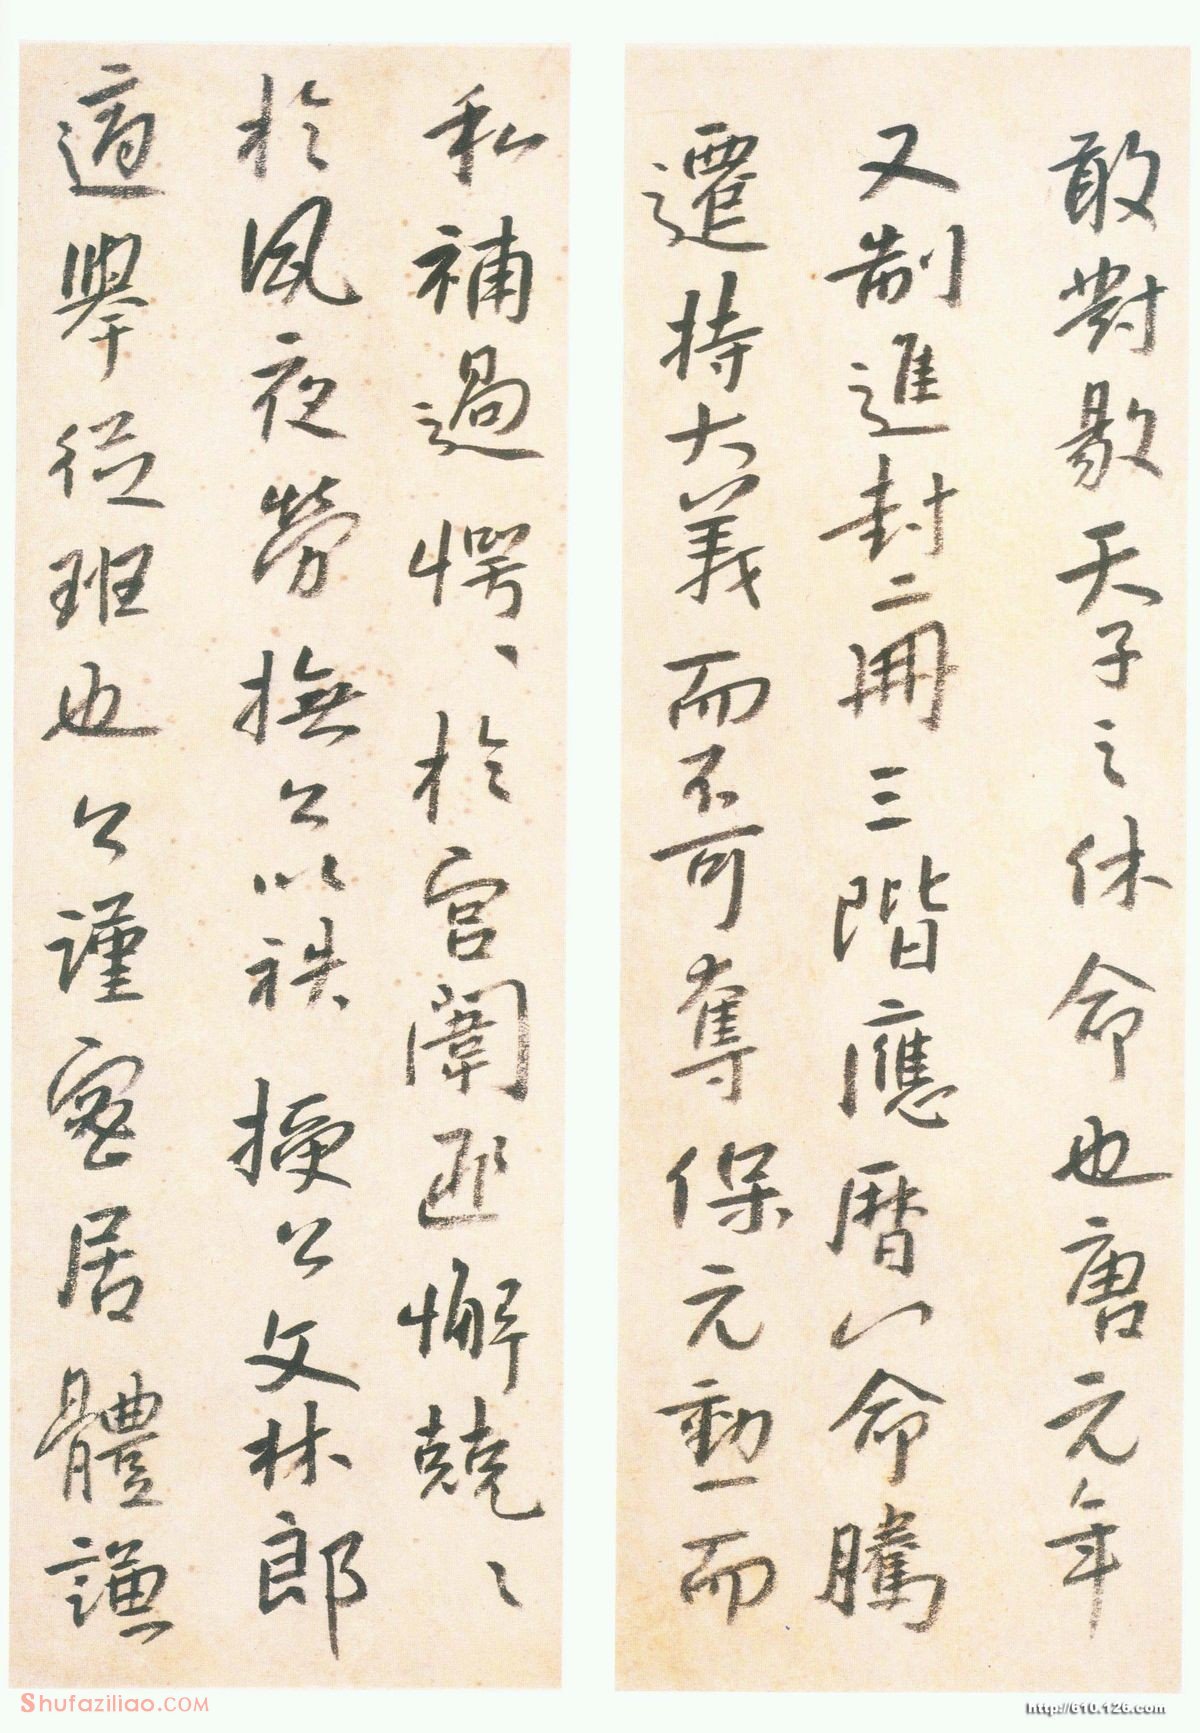 敢對敭天子之休命也唐元年
又制進封二冊三階應曆八命騰
遷持大義而不可奪保元勳而
私補過愕、於宮闈匪懈兢〻
於夙夜勞撫公以袟授公文林郎
適舉從班也公謹密居體謙
Shufaziliao.COM
http://610.126.com